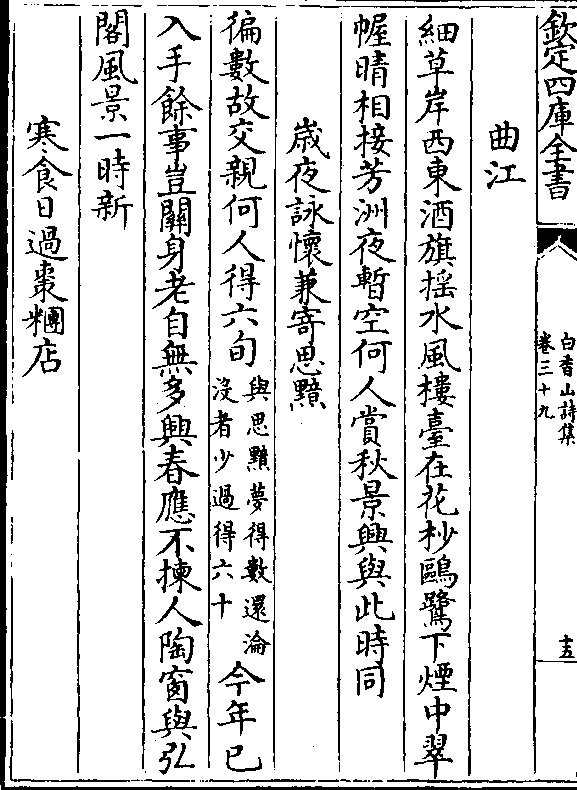 欽定四庫全書
白香山詩集
卷三十九
十五
曲江
細草岸西東酒旗揺水風樓臺在花杪鷗鷺下煙中翠
幄晴相接芳洲夜暫空何人賞秋景興與此時同
歳夜詠懷兼寄思黯
徧數故交親何人得六旬
與思黯夢得數還淪
沒者少過得六十
今年已
入手餘事豈關身老自無多興春應不揀人陶窗與弘
閣風景一時新
寒食日過棗糰店